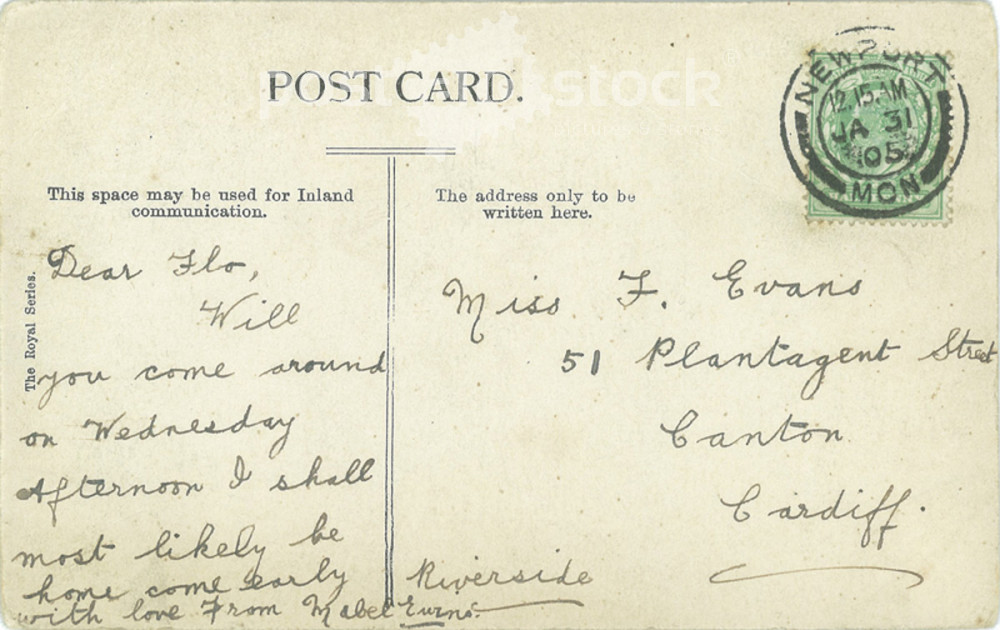 POST CARD.
This space may be used for Inland
communication.
The Royal Series.
Dear Flo,
Will
you come around
on Wednesday
Afternoon I shall
most likely be
home come early
with love From Mabel
The address only to be
written here.
NEWPORT
12.15 AM
JA 31
05
MON
Miss F. Evans
51 Plantagent Street
Canton
Cardiff.
Riverside
stock